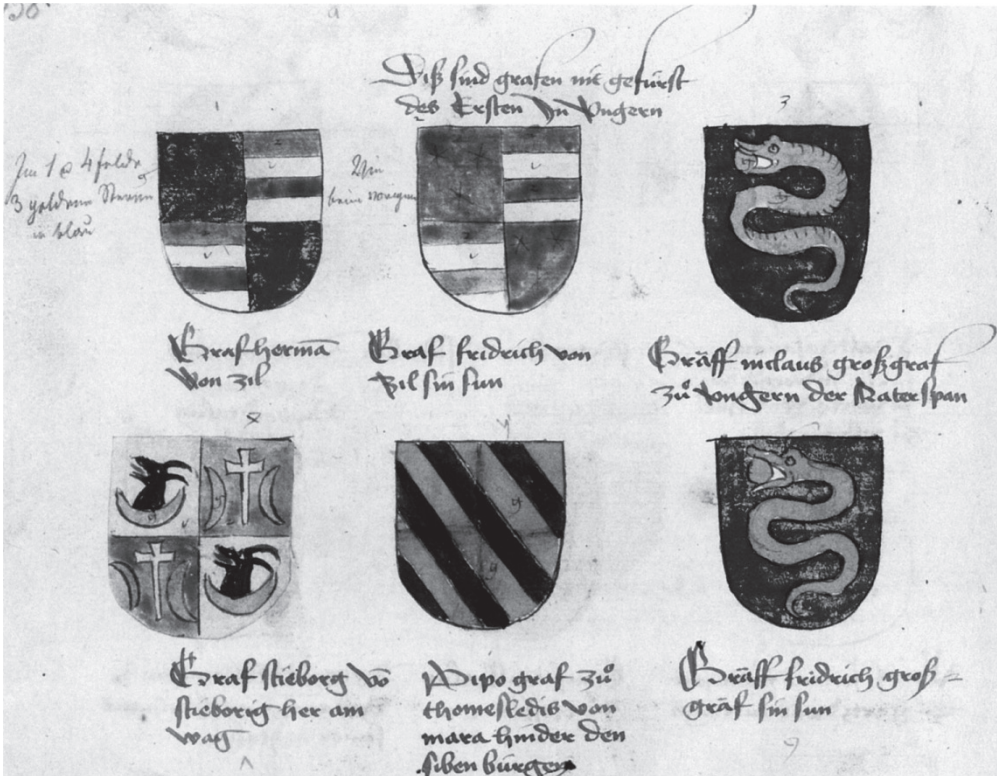 Diß sind grafen nit gefürst
des Ersten Jn Vngern
3
Jm 1 & 4 felde
3 goldene Sterne
in blau
Graf hermā
von zil
Graf fridrich von
Zil sin sun
Gräff niclaus großgraf
zuͦ vngern der Katerspan
Graf stieborg vō
stieborig her am
wag
Pipo graf zuͦ
thomeskedis von
mara hinder den
siben bürgen
Gräff fridrich groß-
gräf sin sun